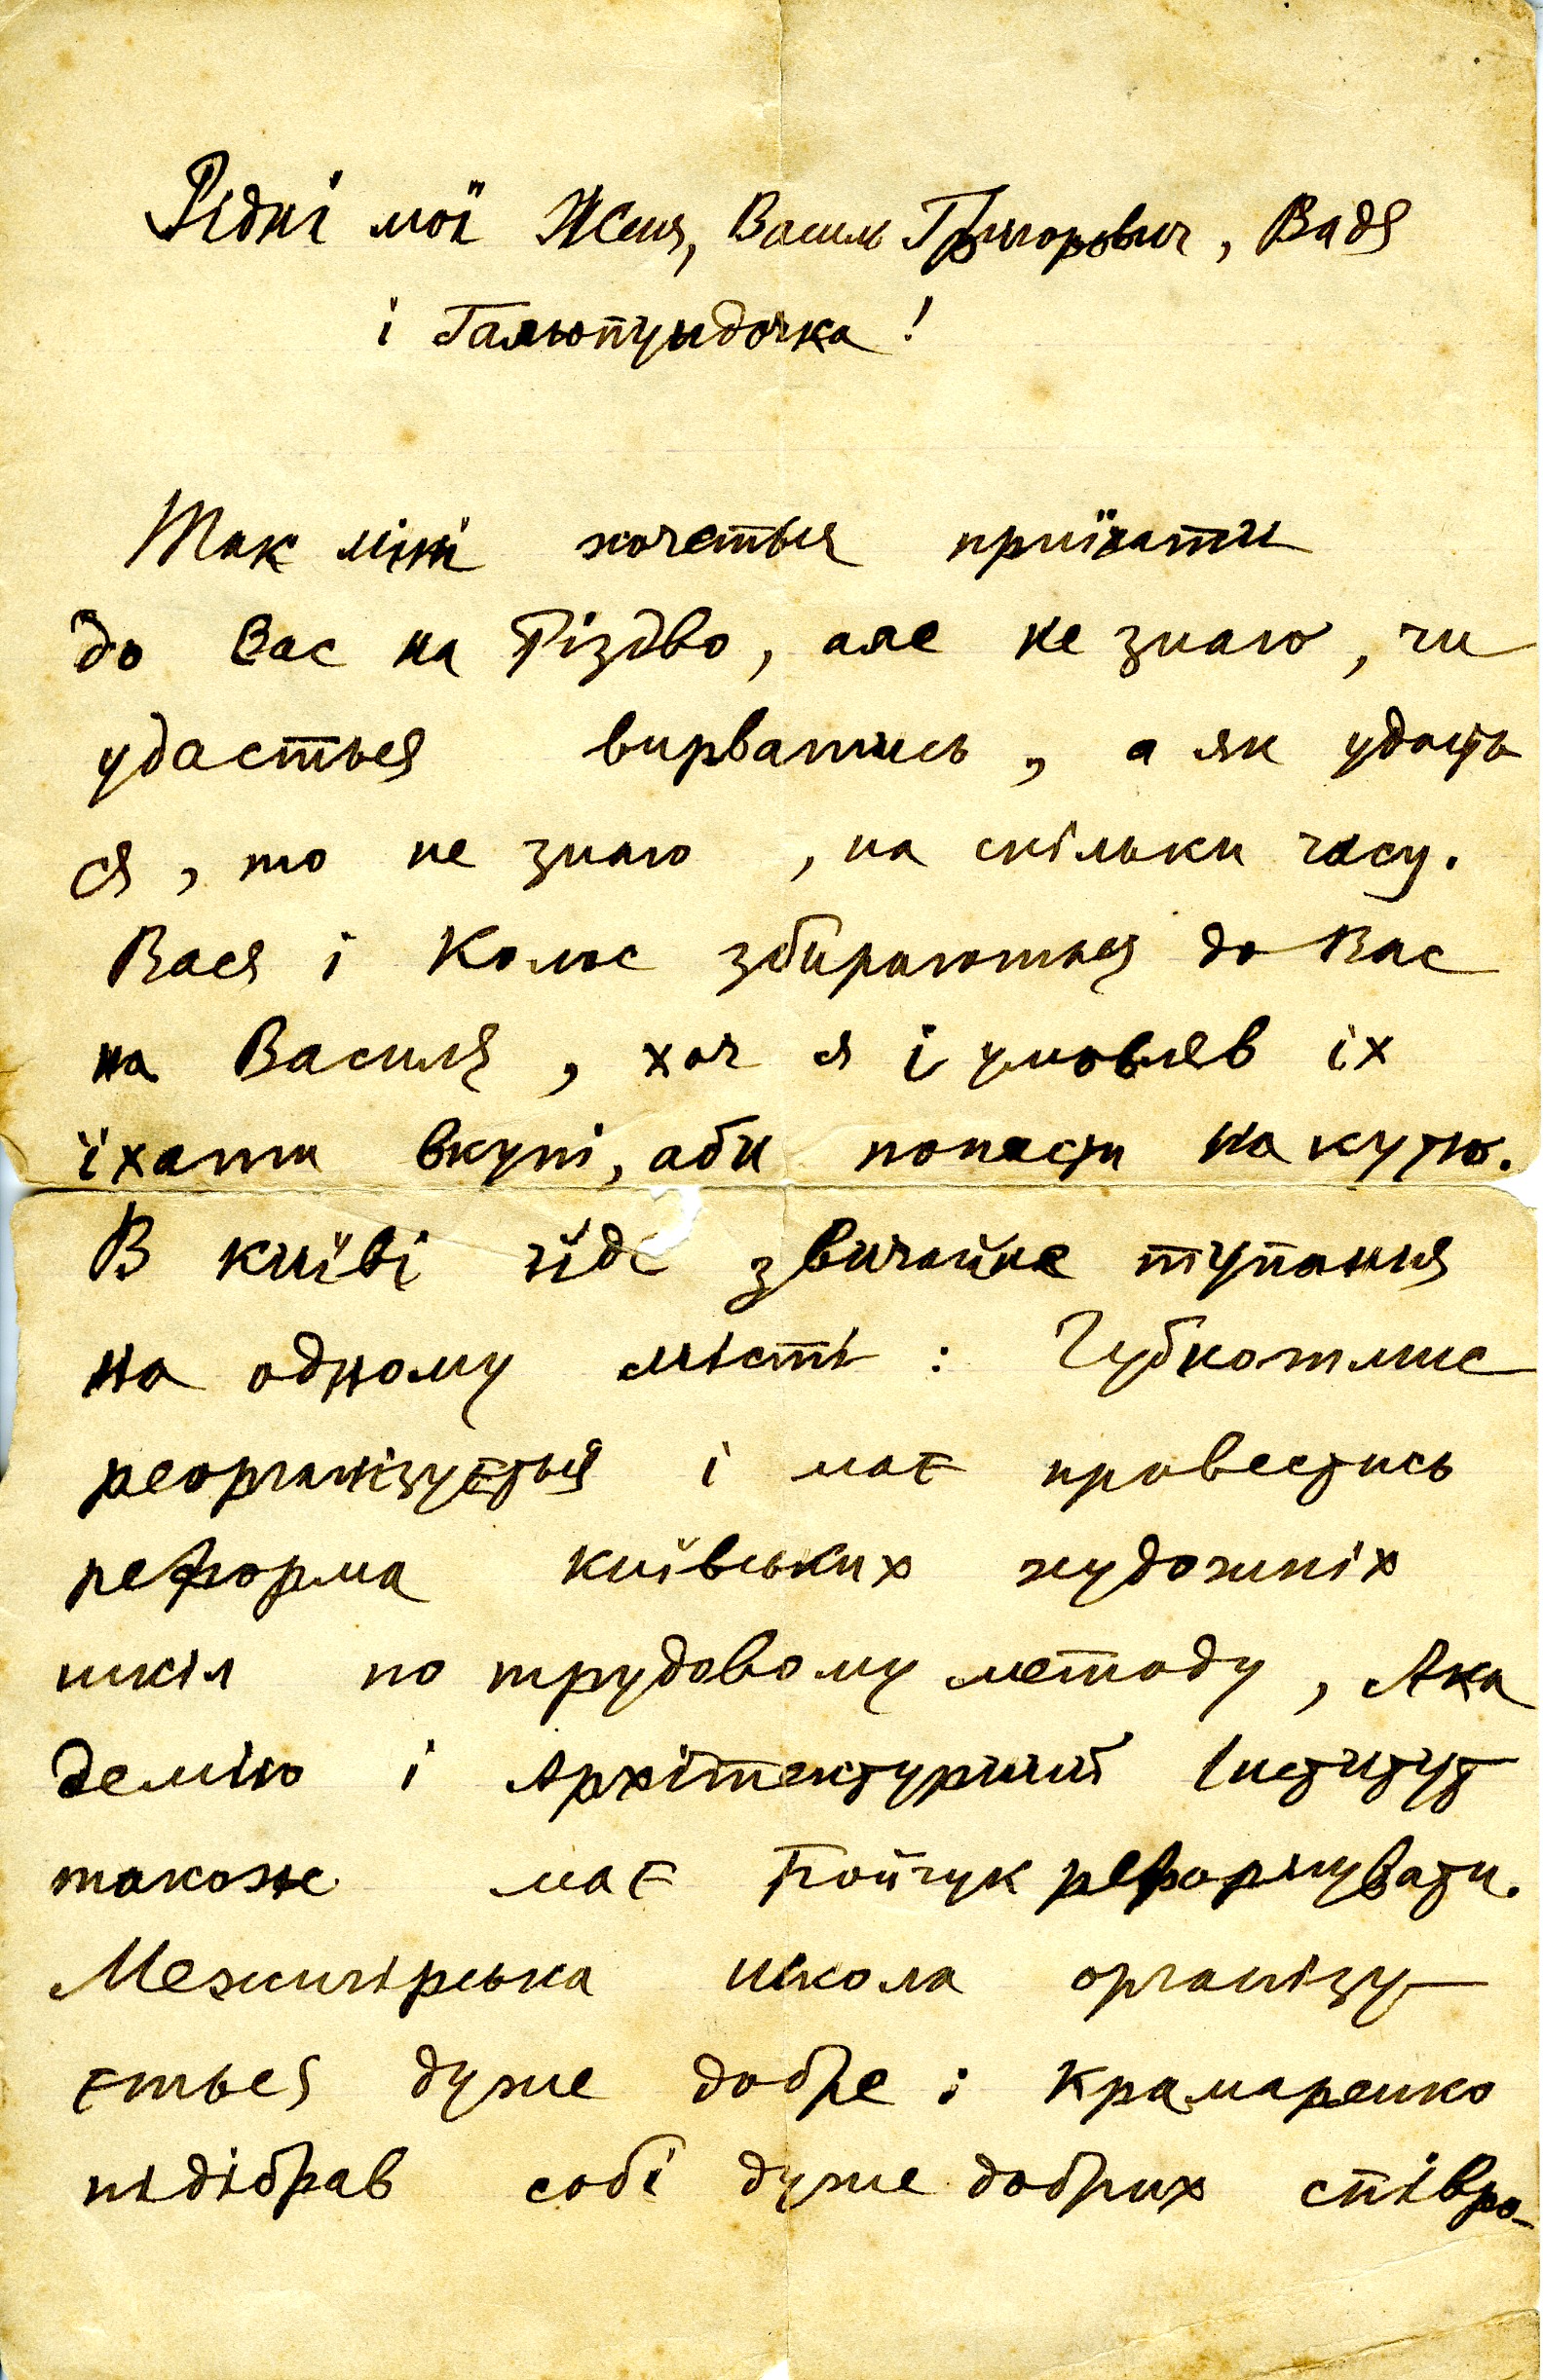 Рідні мої Женя, Василь Григорович, Вадя
і Гальопундочка!
Так міні хочеться приїхати
до Вас на Різдво, але не знаю, чи
удасться вирватись, а як удасть
ся, то не знаю, на скільки часу.
Вася і Кольо збираються до Вас
на Василя, хоч я і умовляв їх
їхати вкупі, аби попасти на кутю.
В київі йде звичайне тупання
на одному місті: Губкотмис
реорганізується і має провестись
реформа київських художніх
шкіл по трудовому методу, Ака
демію і Архітектурний Інститут
також має Бойчук реформувати.
Межигірська школа організу
ється дуже добре і Крамаренко
підібрав собі дуже добрих співро-